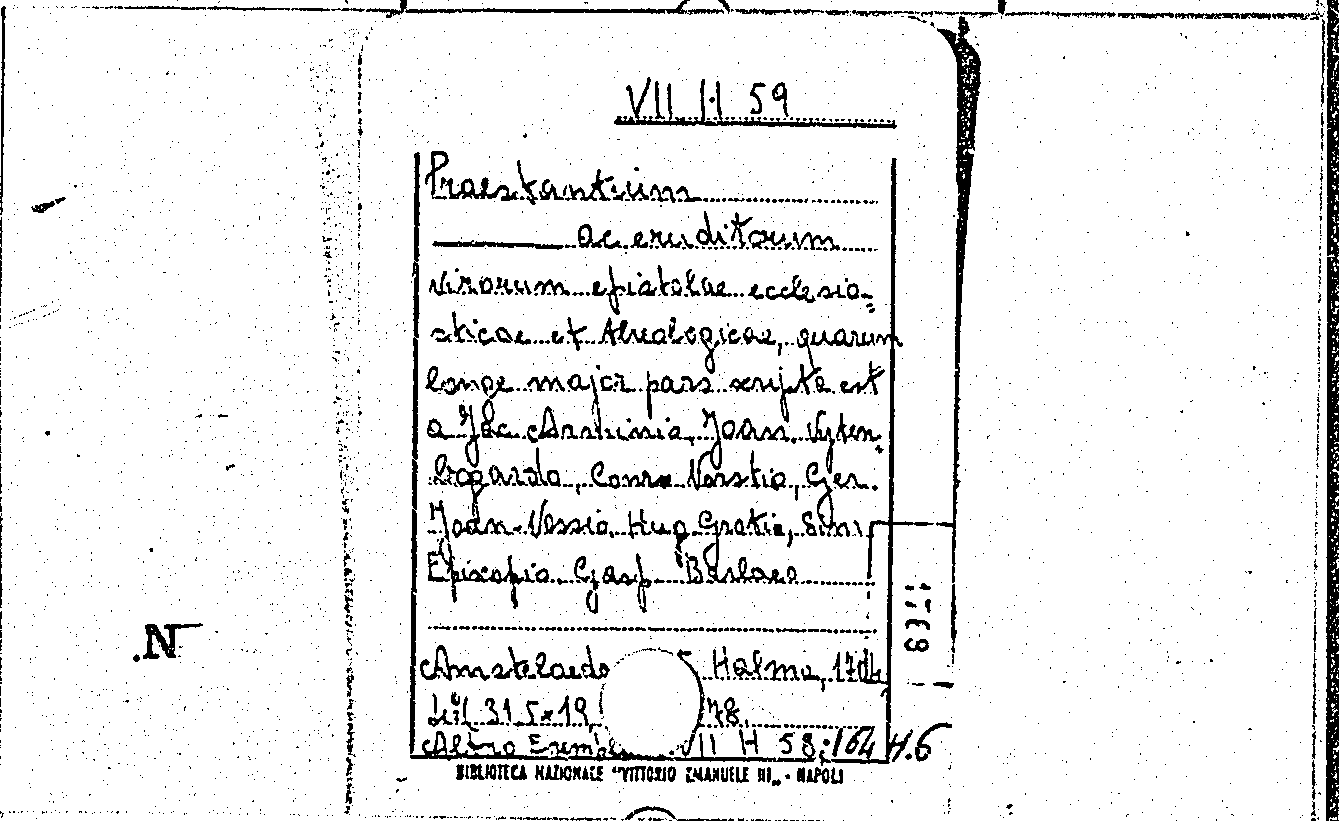 VII H 59
Praestantium
ac eruditorum
virorum epistolae ecclesia-
sticae et theologicae, quarum
longe major pars scripta est
a Jac. Arminio, Joan. Vyten-
bogardo, Conr. Vorstio, Ger.
Joan. Vossio, Hug. Grotio, Sim.
Episcopio, Gasp. Barlaeo
1768
N
Amstelaedo Halma, 1704,
31.5x19, 78.
Altro Esempl VII H 58; 164 H.6
BIBLIOTECA NAZIONALE "VITTORIO EMANUELE III" - NAPOLI